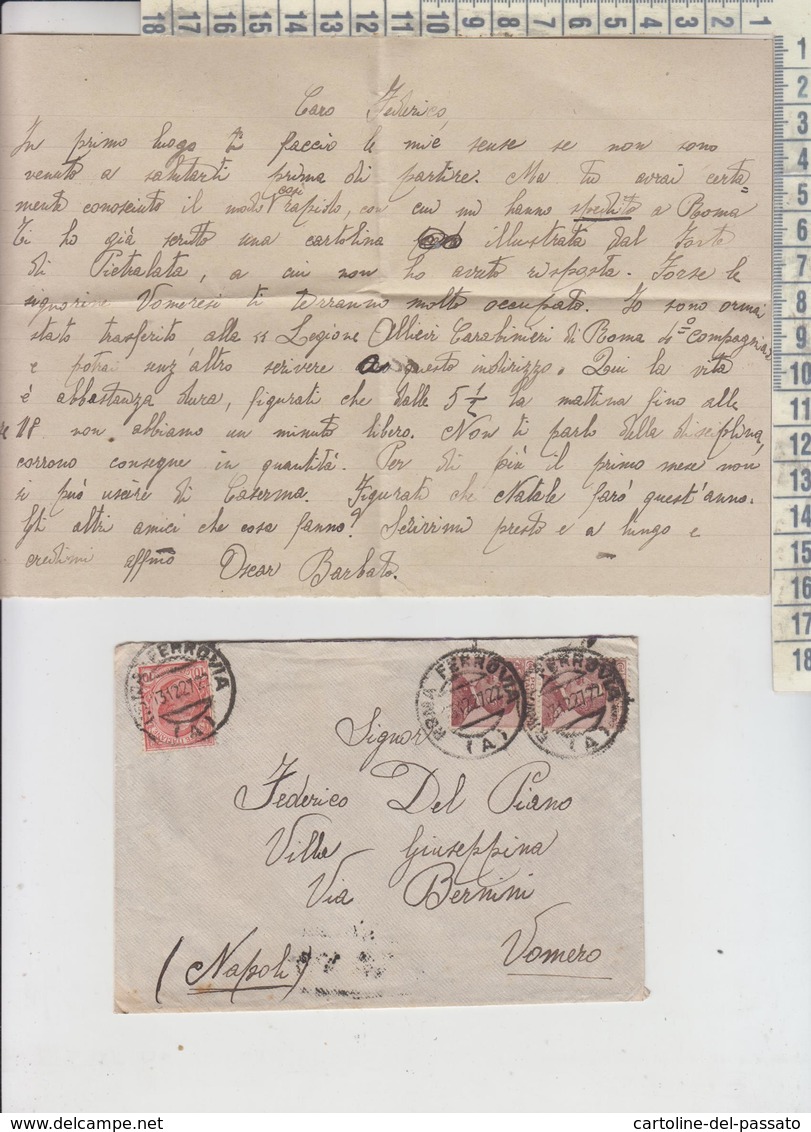 18 17 16 15 14 13 12 11 10 9 8 7 6 5 4 3 2 1
1
2
3
4
5
6
7
8
9
10
11
12
13
14
15
16
17
18
Caro Federico,
In primo luogo ti faccio le mie scuse se non sono
venuto a salutarti prima di partire. Ma tu avrai certa=
mente conosciuto il modo così rapido, con cui mi hanno spedito a Roma
Ti ho già scritto una cartolina illustrata dal Forte
di Pietralata, a cui non ho avuto risposta. Forse le
signorine Vomeresi ti terranno molto occupato. Io sono ormai
stato trasferito alla Legione Allievi Carabinieri di Roma 4º Compagnia
e potrai senz'altro scrivere questo indirizzo. Qui la vita
è abbastanza dura, figurati che dalle 5 ½ la mattina fino alle
18 non abbiamo un minuto libero. Non ti parlo della disciplina,
corrono consegne in quantità. Per di più il primo mese non
si può uscire di Caserma. Figurati che Natale farò quest'anno.
Gli altri amici che cosa fanno? Scrivimi presto e a lungo e
credimi affmo Oscar Barbato.
ROMA FERROVIA
(A)
ROMA FERROVIA
(A)
ROMA FERROVIA
(A)
Signor
Federico Del Piano
Villa Giuseppina
Via Bernini
Vomero
(Napoli)
cartoline-del-passato